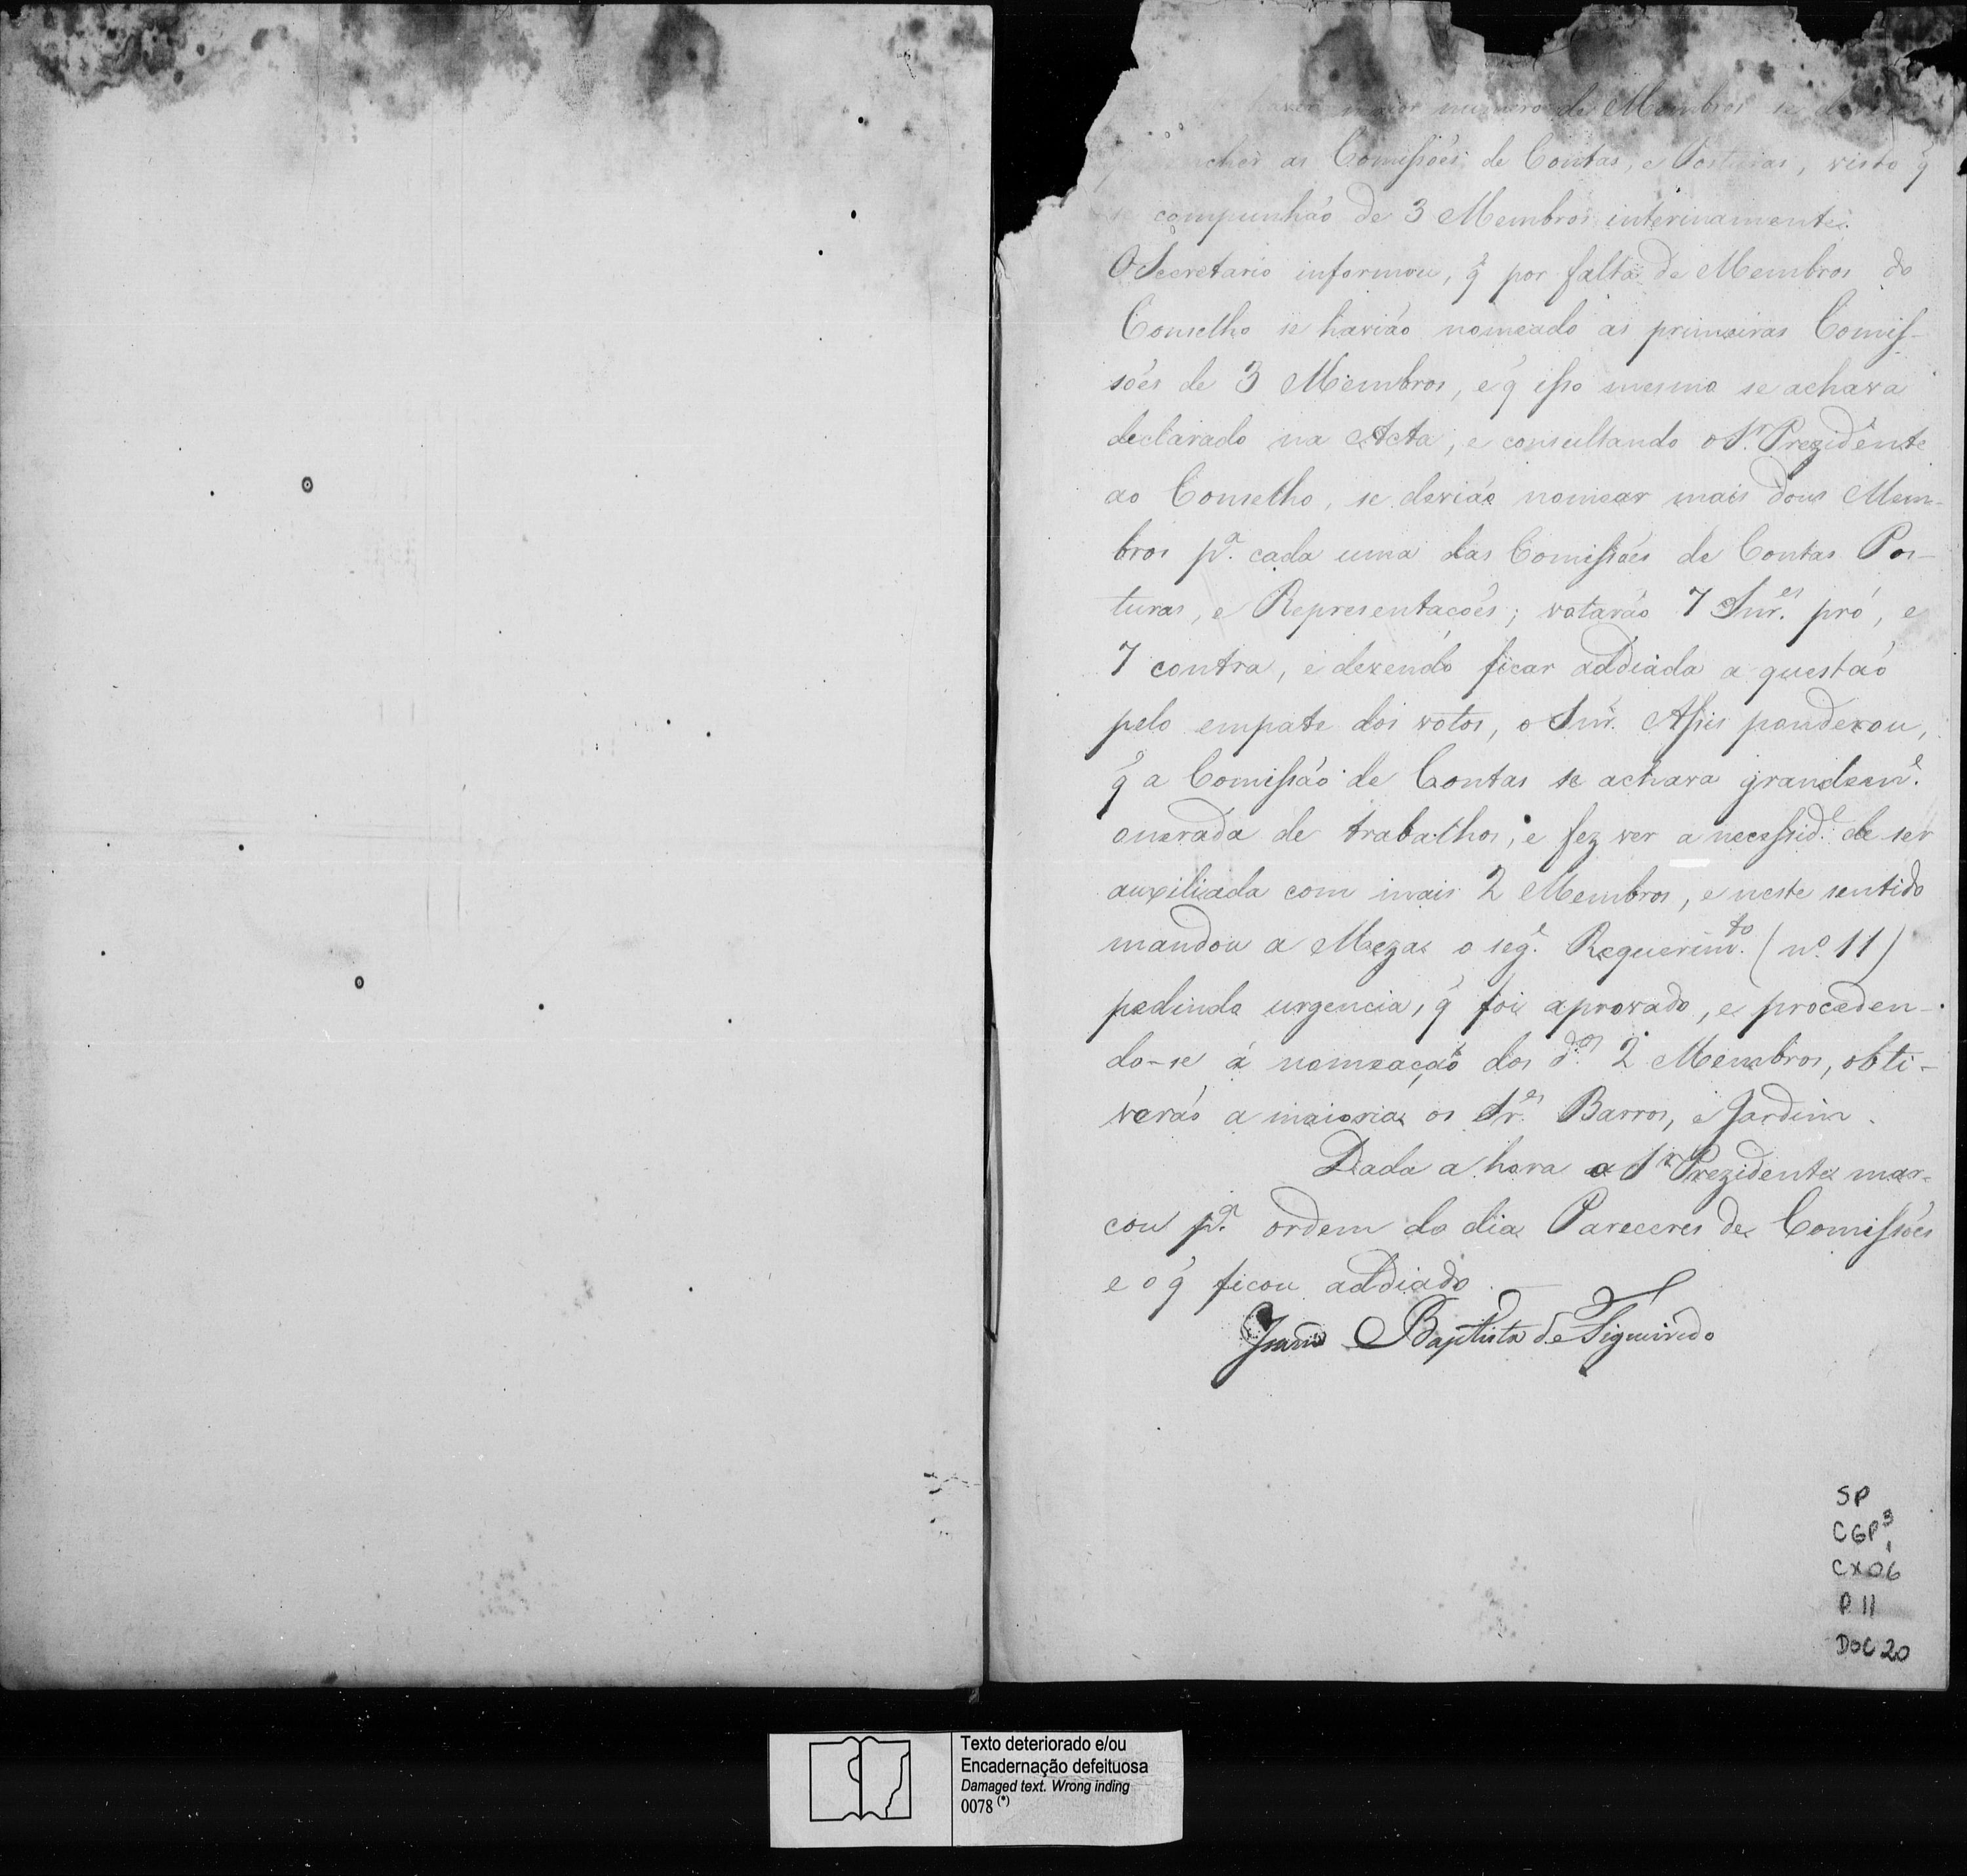 haver maior numero de Membros se
as Comissões de Contas, e Posturas, visto q̃
se compunhão de 3 Membros interinamente.
O Secretario informou, q̃ por falta de Membros do
Conselho se havião nomeado as primeiras Comis-
sões de 3 Membros, e q̃ isso mesmo se achava
declarado na Acta, e consultando o Sr. Prezidente
ao Conselho, se devião nomear mais dous Mem-
bros pa. cada uma das Comissões de Contas Pos-
turas, e Representacões; votarão 7 Snr.es pró, e
7 contra, e devendo ficar addiada a questão
pelo empate dos votos, o Snr. Assis ponderou,
q̃ a Comissão de Contas se achava grandeme.
onerada de trabalhos, e fez ver a necesside. de ser
auxiliada com mais 2 Membros, e neste sentido
mandou a Meza o sege. Requerimto. (no. 11)
pedindo urgencia, q̃ foi aprovado, e proceden-
do-se á nomeação dos dos. 2 Membros, obti-
verão a maioria os Sr.es Barros, e Jardim.
Dada a hora o Sr Prezidente mar-
cou pa. ordem do dia Pareceres de Comissões
e o q̃ ficou addiado.
Baptista de Figueiredo
SP
CGP3
1
CX06
P. 11
DOC 20
Texto deteriorado e/ou
Encadernação defeituosa
Damaged text. Wrong inding
0078 (*)